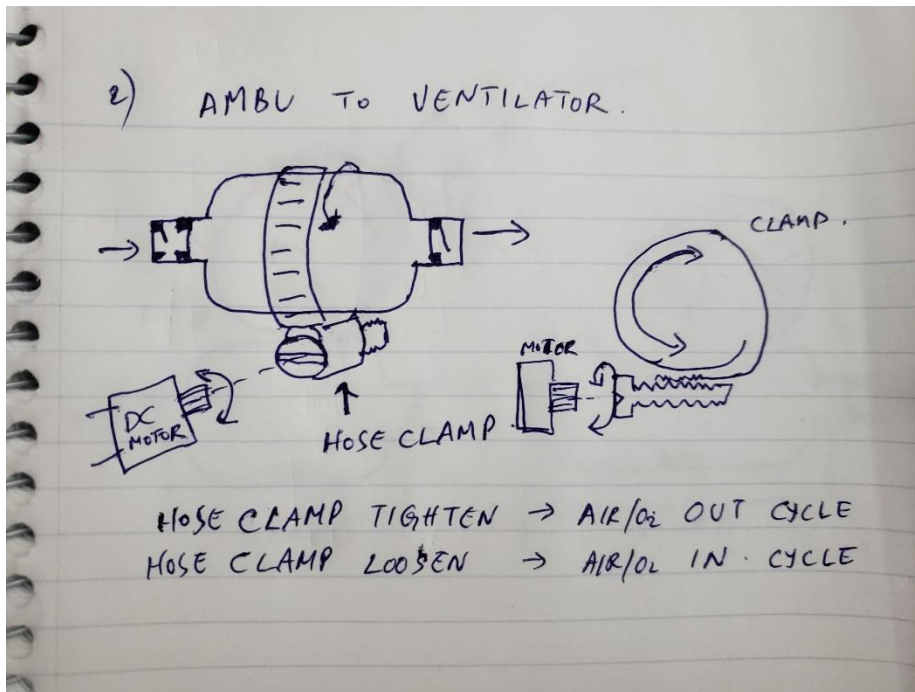 2) AMBU TO VENTILATOR.
CLAMP.
MOTOR
DC
MOTOR
HOSE CLAMP
HOSE CLAMP TIGHTEN → AIR/O2 OUT CYCLE
HOSE CLAMP LOOSEN → AIR/O2 IN. CYCLE